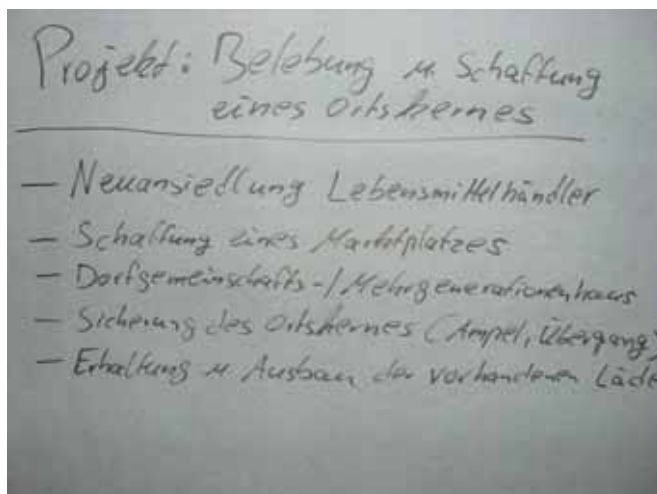 Projekt: Belebung u. Schaffung
eines Ortskernes
– Neuansiedlung Lebensmittelhändler
– Schaffung eines Marktplatzes
– Dorfgemeinschafts-/Mehrgenerationenhaus
– Sicherung des Ortskernes (Ampel, Übergang)
– Erhaltung u Ausbau der vorhandenen Läde